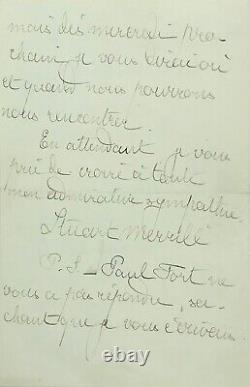 mais dès mercredi pro
chain je vous dirai où
et quand nous pourrons
nous rencontrer.
En attendant je vous
prie de croire à toute
mon admirative sympathie.
Stuart Merrill
P. S. _ Paul Fort ne
vous a pas répondu, sa-
chant que je vous écrivais.